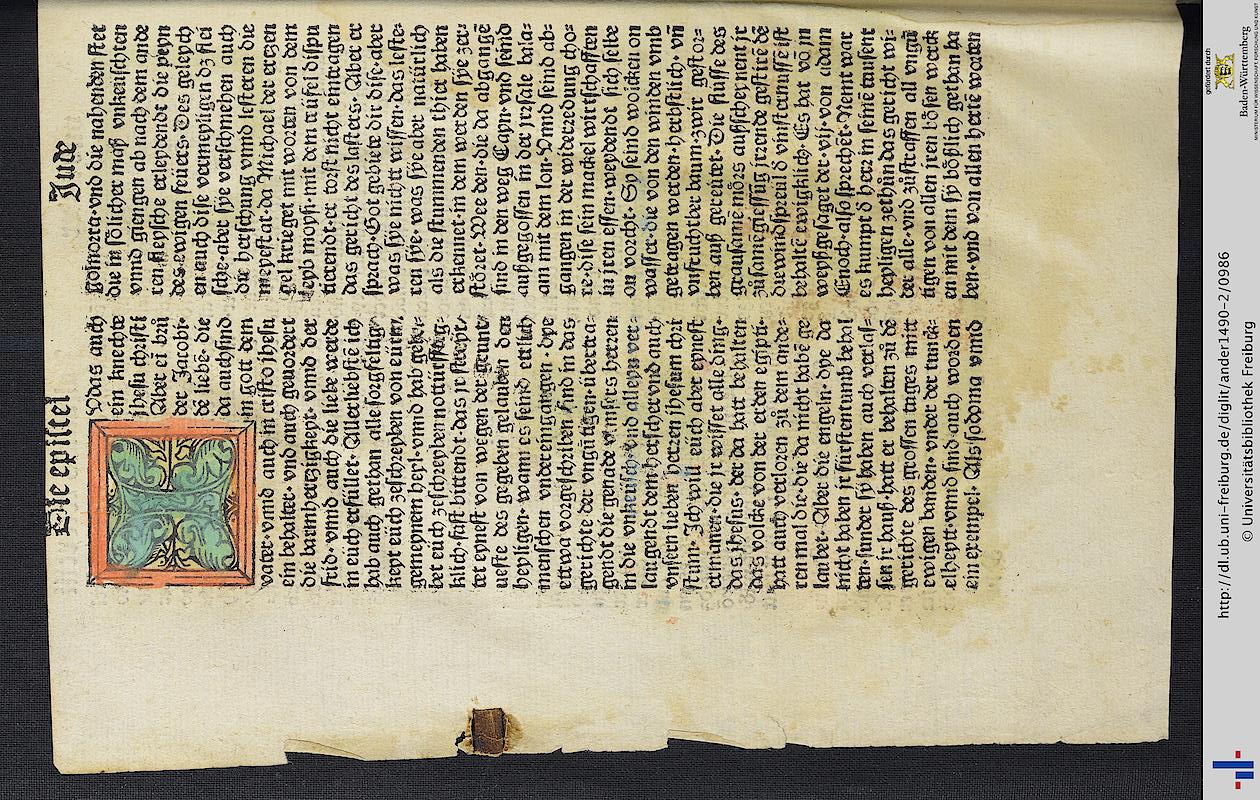 Die epistel
Jude
Vdas auch
ein knechte
jhesu christi
Aber ei brů
der Jacobi·
dē liebē· die
da auch sind
in gott dem
vater· vnnd auch in cristo ihesu
ein behalter· vnd auch geuordert
die barmhertzigkeyt· vnnd der
frid· vnnd auch die liebe werde
in eüch erfüllet· Allerliebstē ich
hab auch gethan alle sorgfeltig-
keyt eüch zeschreyben von eürm
gemeynem heyl· vnnd hab
eüch zeschreyben
bittend· das jr
von wegen der
des gegeben gelauben den
heyligen· wann es seind ettlich
menschen vndereingangen· dye
ettwa vorgeschriben sind in das
gerichte der vngütigen· übertra-
gendt die genade vnsers herren
in die vnkeüsch· vnd alleyn ver-
laugendt den herscher vnd auch
vnsern lieben herren jhesum cri
stum· Ich will eüch aber eyn est
ermanen· die jr wisset alle ding·
das jhesus· der da hatt behalten
das volcke von der erden egipti·
hatt auch verloren zů dem ande-
ren mal die· die da nicht habē ge
laubet· Aber die engeln· dye da
nicht haben jr fürstentumb behal
ten· sunder sy haben auch verlas-
sen jr hauß hatt er behalten zů dē
gerichte des grossen tages mitt
ewigen banden· vnder der tunck-
elheytt· vnnd sind auch worden
ein exempel· Als sodoma vnnd
gomorra· vnd die nahenden stet
die in sölicher maß vnkeüschten
vnnd giengen ab nach dem ande
ren fleysche erleydendt die peyn
des ewigen feüers· Des geleych
en auch dise vermeyligen dz flei
sche· aber sye verschmehen auch
die herschung vnnd lesteren die
meyestat· da Michael der ertzen
gel krieget mit worten von dem
leyb moysi· mit dem teüfel dispu
tierendt· er torst nicht eintragen
das gericht des lasters· Aber er
sprach· Got gebiete dir dise· aber
was sye nicht wissen· das leste-
ren sye· was sye aber natürlich
als die stummenden thier haben
erkennet· in dem werden sye zer-
störet· Wee den· die da abgangē
sind in den weg Cayn· vnd seind
außgegossen in der irrsale bala-
am mit dem lon· Vnd seind ab-
gangen in der widerredung cho-
re· dise sein mackel wirtschafften
in jren essen· weydendt sich selbe
on vorcht· Sy seind wolcken on
wasser· die von den winden vmb
getragen werden· herbstlich· vñ
vnfruchtber baum· zwir gestor-
ben auß gereütet· Die flüsse des
grausamē mörs außscheümendt jr
zůsamē irrende gestirē dē
die windspreül d vinsternuß ist
behaltē ewigklich· Es hat võ in
weyßgesaget der vij· von adam
Enoch· also sprechēt· Nemt war
es kumpt d herr in seinē tausent
heyligen zethůn das gericht wi-
der alle· vnd zů straffen all vngů
tigen von allen jren bösen werck
en mit dem sy bößlich gethan ha
ben· vnd von allen herte worten
gefördert durch
Baden-Württemberg
MINISTERIUM FÜR WISSENSCHAFT, FORSCHUNG UND KUNST
http://dl.ub.uni-freiburg.de/diglit/ander1490-2/0986
© Universitätsbibliothek Freiburg